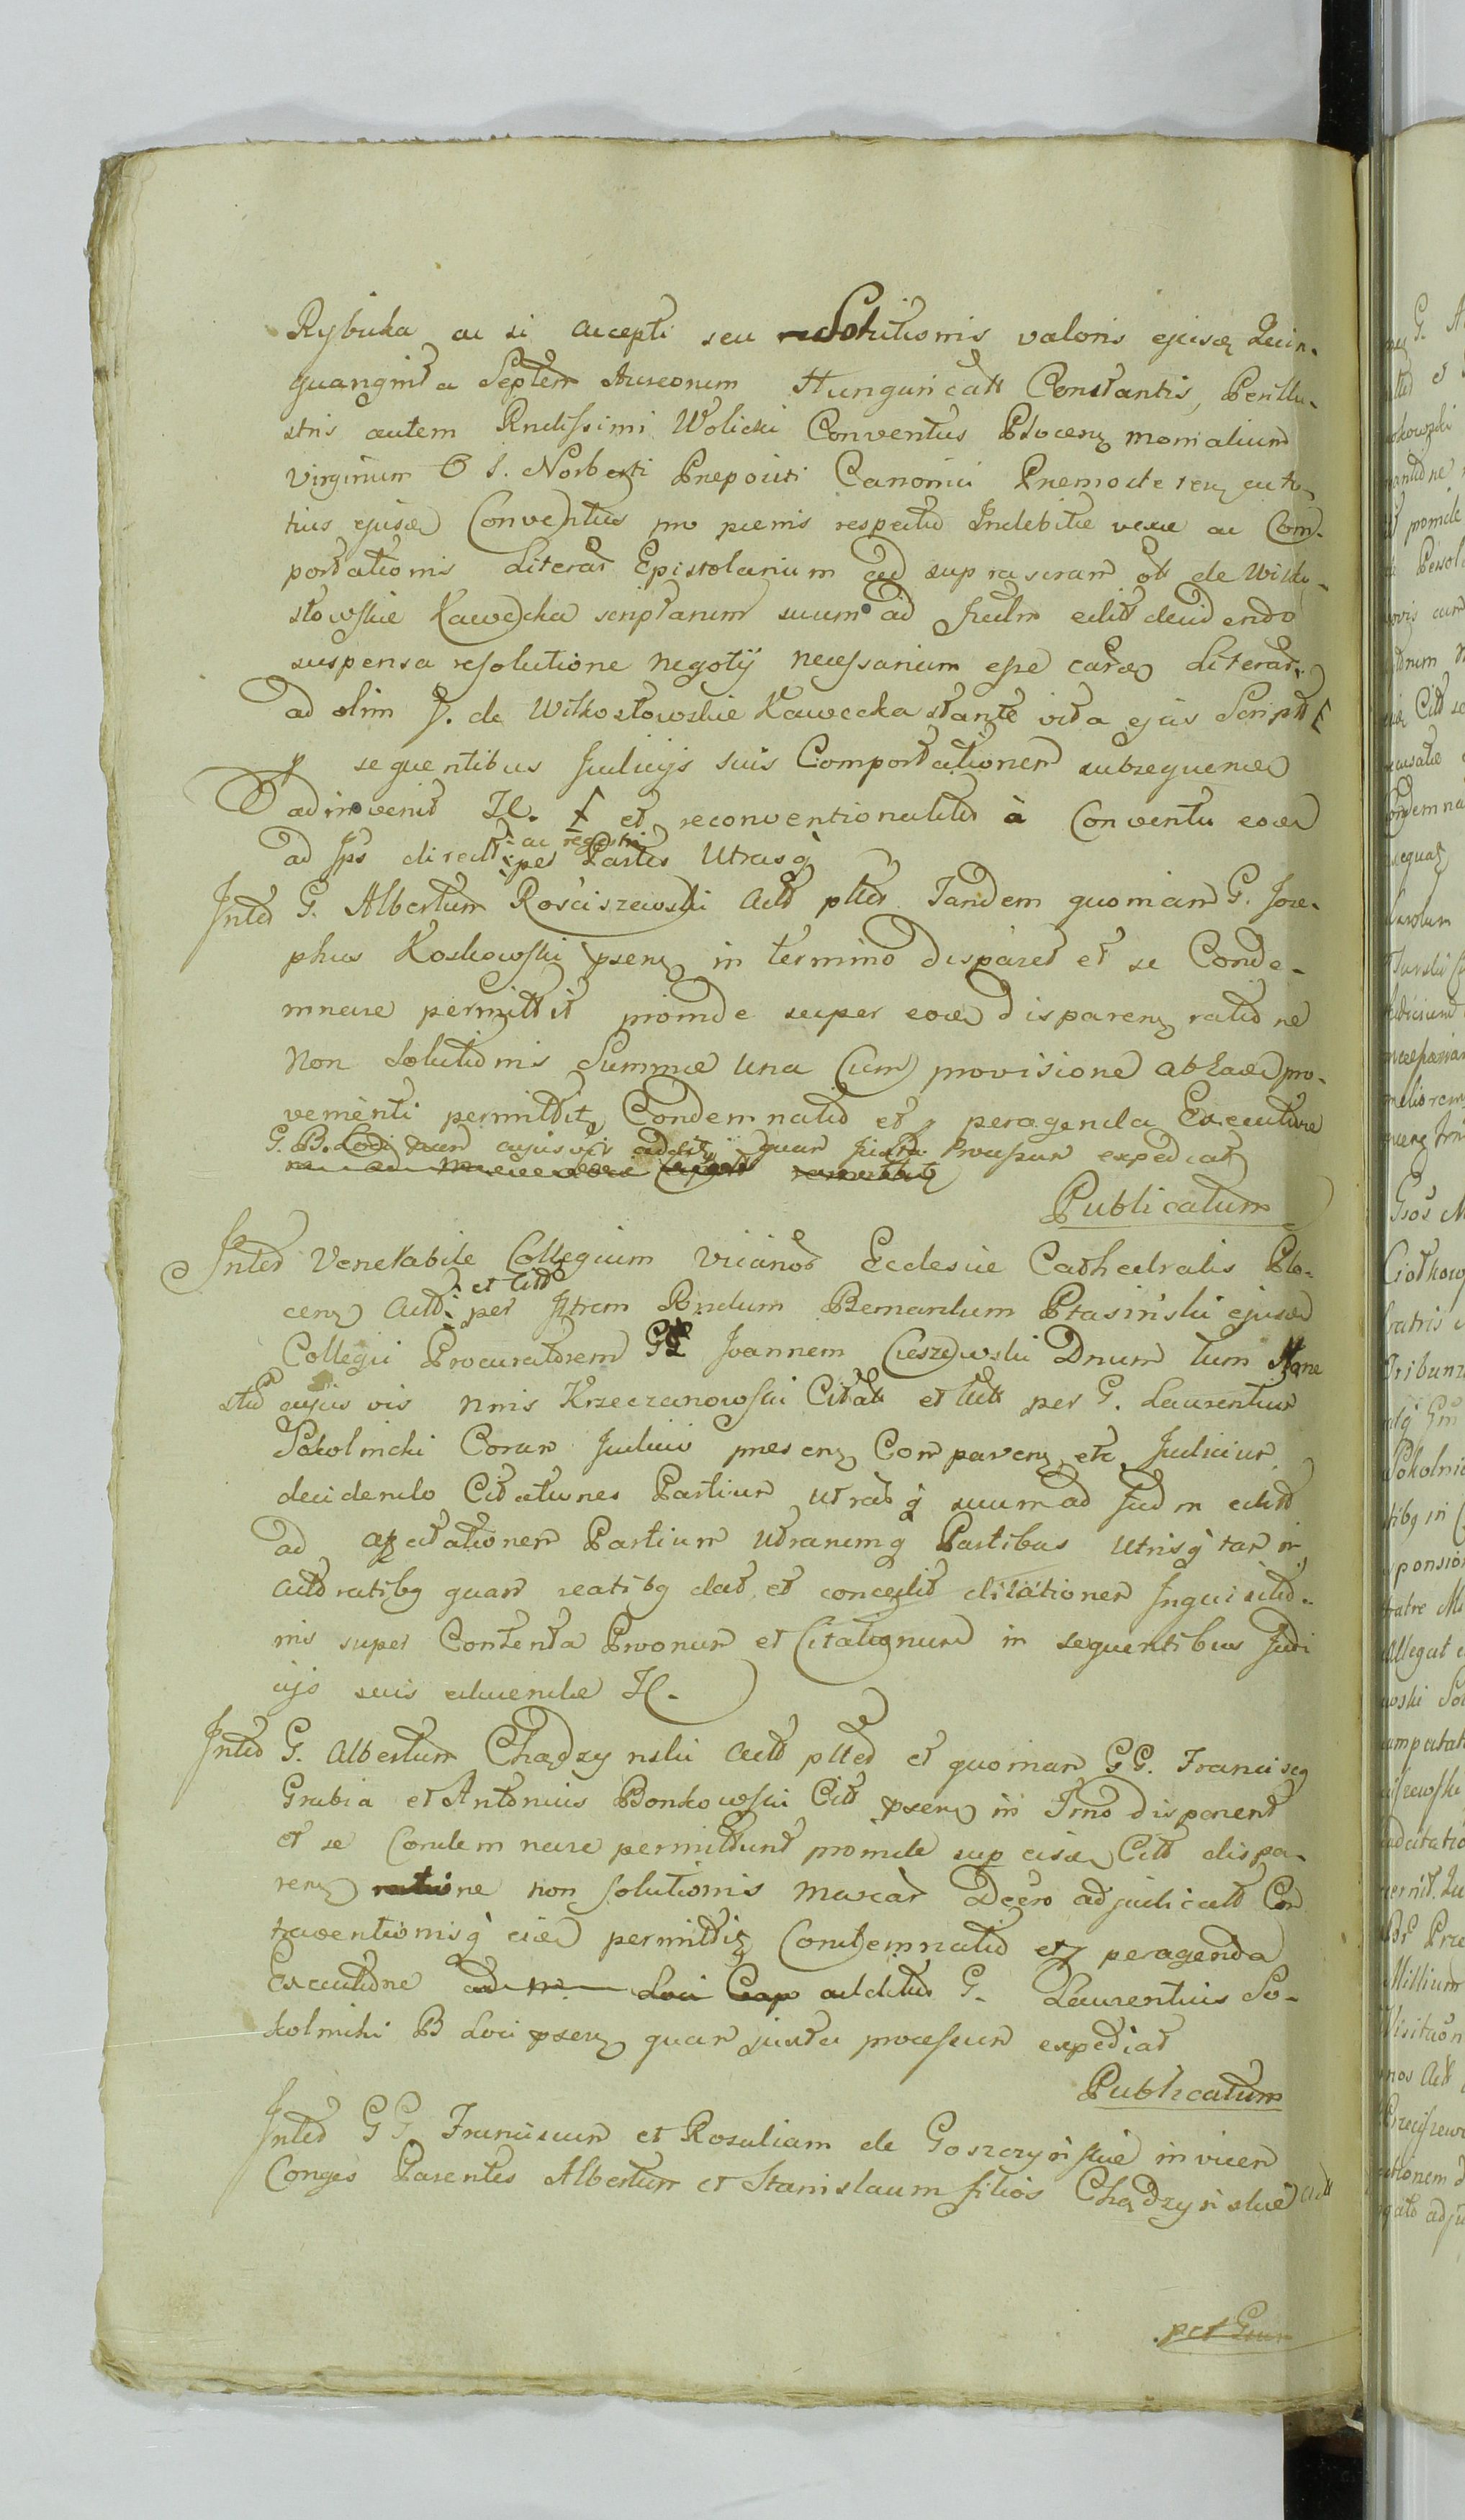 Rybicka ac si accepti seu Solutionis valoris ejusd Quin-
quaginta Septem Aureorum Hungaricall Constantis, Perillu-
stris autem Rndissimi Wolicki Conventus Plocen monialium
Virginum O S. Norberti Prepositi Canonici Premonstraten
tius ejusd Conventus pro poenis respectu Indebitae vexae ac Com-
portationis Literar Epistolarium ad suprascram olt de Wilko-
stowskie Kawecka scriptarum suum ad Judm edit decidendo
suspensa resolutione negotij necessarium esse earu Literar
ad olim J. de Wilkostowskie Kawecka stante vita ejus Script
p sequentibus Judicijs suis Comportationem subsequend
adinvenit et reconventionalibus à Conventu eod
ad Jps direct ac regestri per Partes Utrasq
Inter G. Albertum Rosciszewski Act pltd Tandem quoniam G. Jose-
phus Koskowski psens in termino disparet et se Conde-
mnare permittit proinde super eod disparen ratione
non Solutionis Summae una cum provisione abhaed pro-
venienti permittit Condemnatio et p peragenda Executione
G. B. Loci cujusvis additus quam juxta Processum expediat
Publicatum
Inter Venerabile Collegium Vicarior Ecclesiae Cathedralis Plo-
cens Act et Citt per Jltrem Rndum Bernardum Ptasinski ejusd
Collegii Procuratorem G Joannem Cieszewski Dnum tum Hone
stu cujusvis nnis Krzeczanowski Citatt et Actt per G. Laurentium
Sokolnicki Coram Judicio presen Comparen etc. Judicium
decidendo Citationes Partium utrasq suum ad Judm edit
ad affectationem Partium Utrarumq Partibus Utrisq tam in
Actoratibq quam reatibq dat et concedit dilationem Inquisitio-
nis super Contenta Pwonum et Citationum in sequentibus Judi
cijs suis educendae
Inter G. Albertum Chądzynski Act pltd et quoniam GG. Franciscq
Grabia et Antonius Bonkowski Citt psens in Trno disparent
et se Condemnare permittunt proinde sup eisd Citt dispa-
rens ratione non solutionis marcar Dcero adjudicatt Con
traventionisq eid permittit Condemnatio et p peragenda
Executione ad Loci Cap additus G. Laurentius So-
kolnicki B Loci psens quam juxta processum expediat
Publicatum
Inter GG. Franciscum et Rosaliam de Goszczynskie invicem
Conges Parentes Albertum et Stanislaum filios Chądzynskie Actt
per Gnm